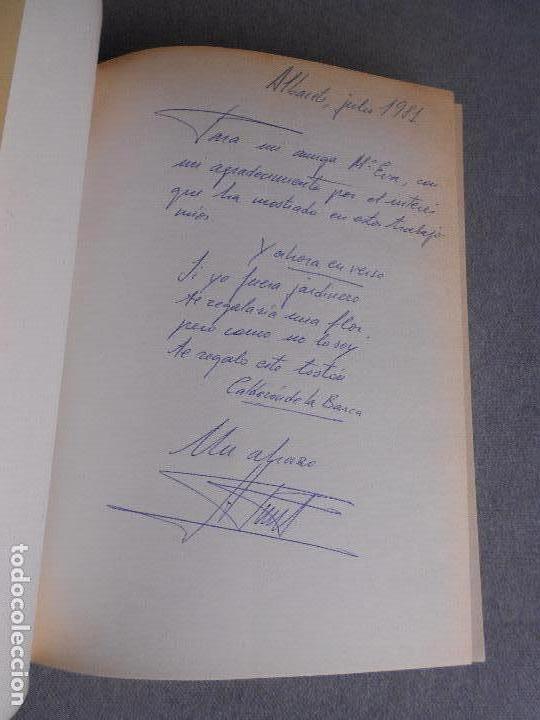 Albacete, julio 1981
Para mi amiga Mª Eva, con
mi agradecimiento por el interés
que ha mostrado en estos trabajos
míos
Y ahora en verso
Si yo fuera jardinero
te regalaría una flor.
pero como no lo soy
te regalo este tostón
Calderón de la Barca
Un abrazo
todocoleccion